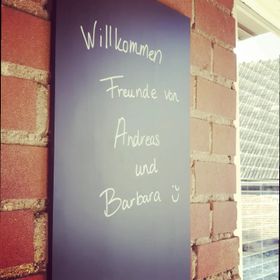 Willkommen
Freunde von
Andreas
und
Barbara ü